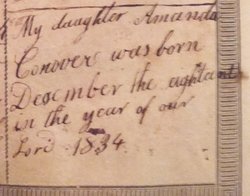 My daughter Amanda
Conovers was born
Desember the eightant
in the year of our
Lord 1834